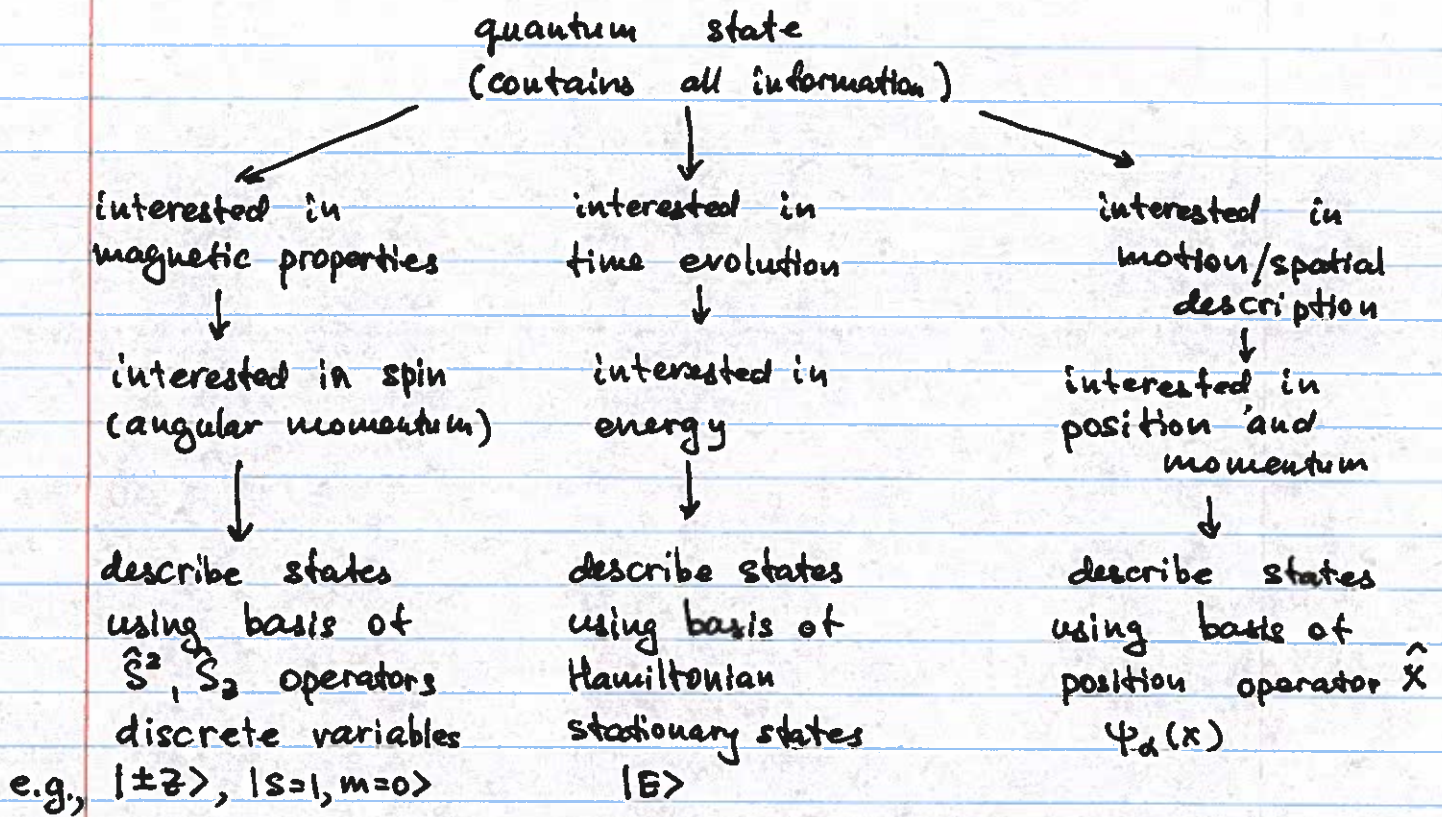 quantum state
(contains all information)
interested in
magnetic properties
interested in spin
(angular momentum)
describe states
using basis of
Ŝ², Ŝz operators
discrete variables
e.g., |±z>, |s=1, m=0>
interested in
time evolution
interested in
energy
describe states
using basis of
Hamiltonian
stationary states
|E>
interested in
motion/spatial
description
interested in
position and
momentum
describe states
using basis of
position operator x̂
ψα(x)